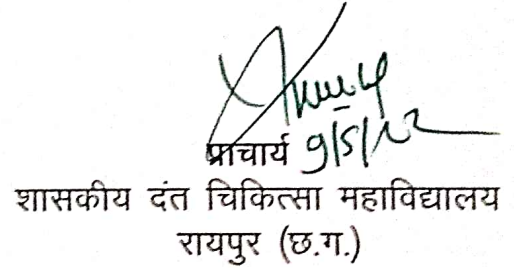 प्राचार्य 9/5/22
शासकीय दंत चिकित्सा महाविद्यालय
रायपुर (छ.ग.)